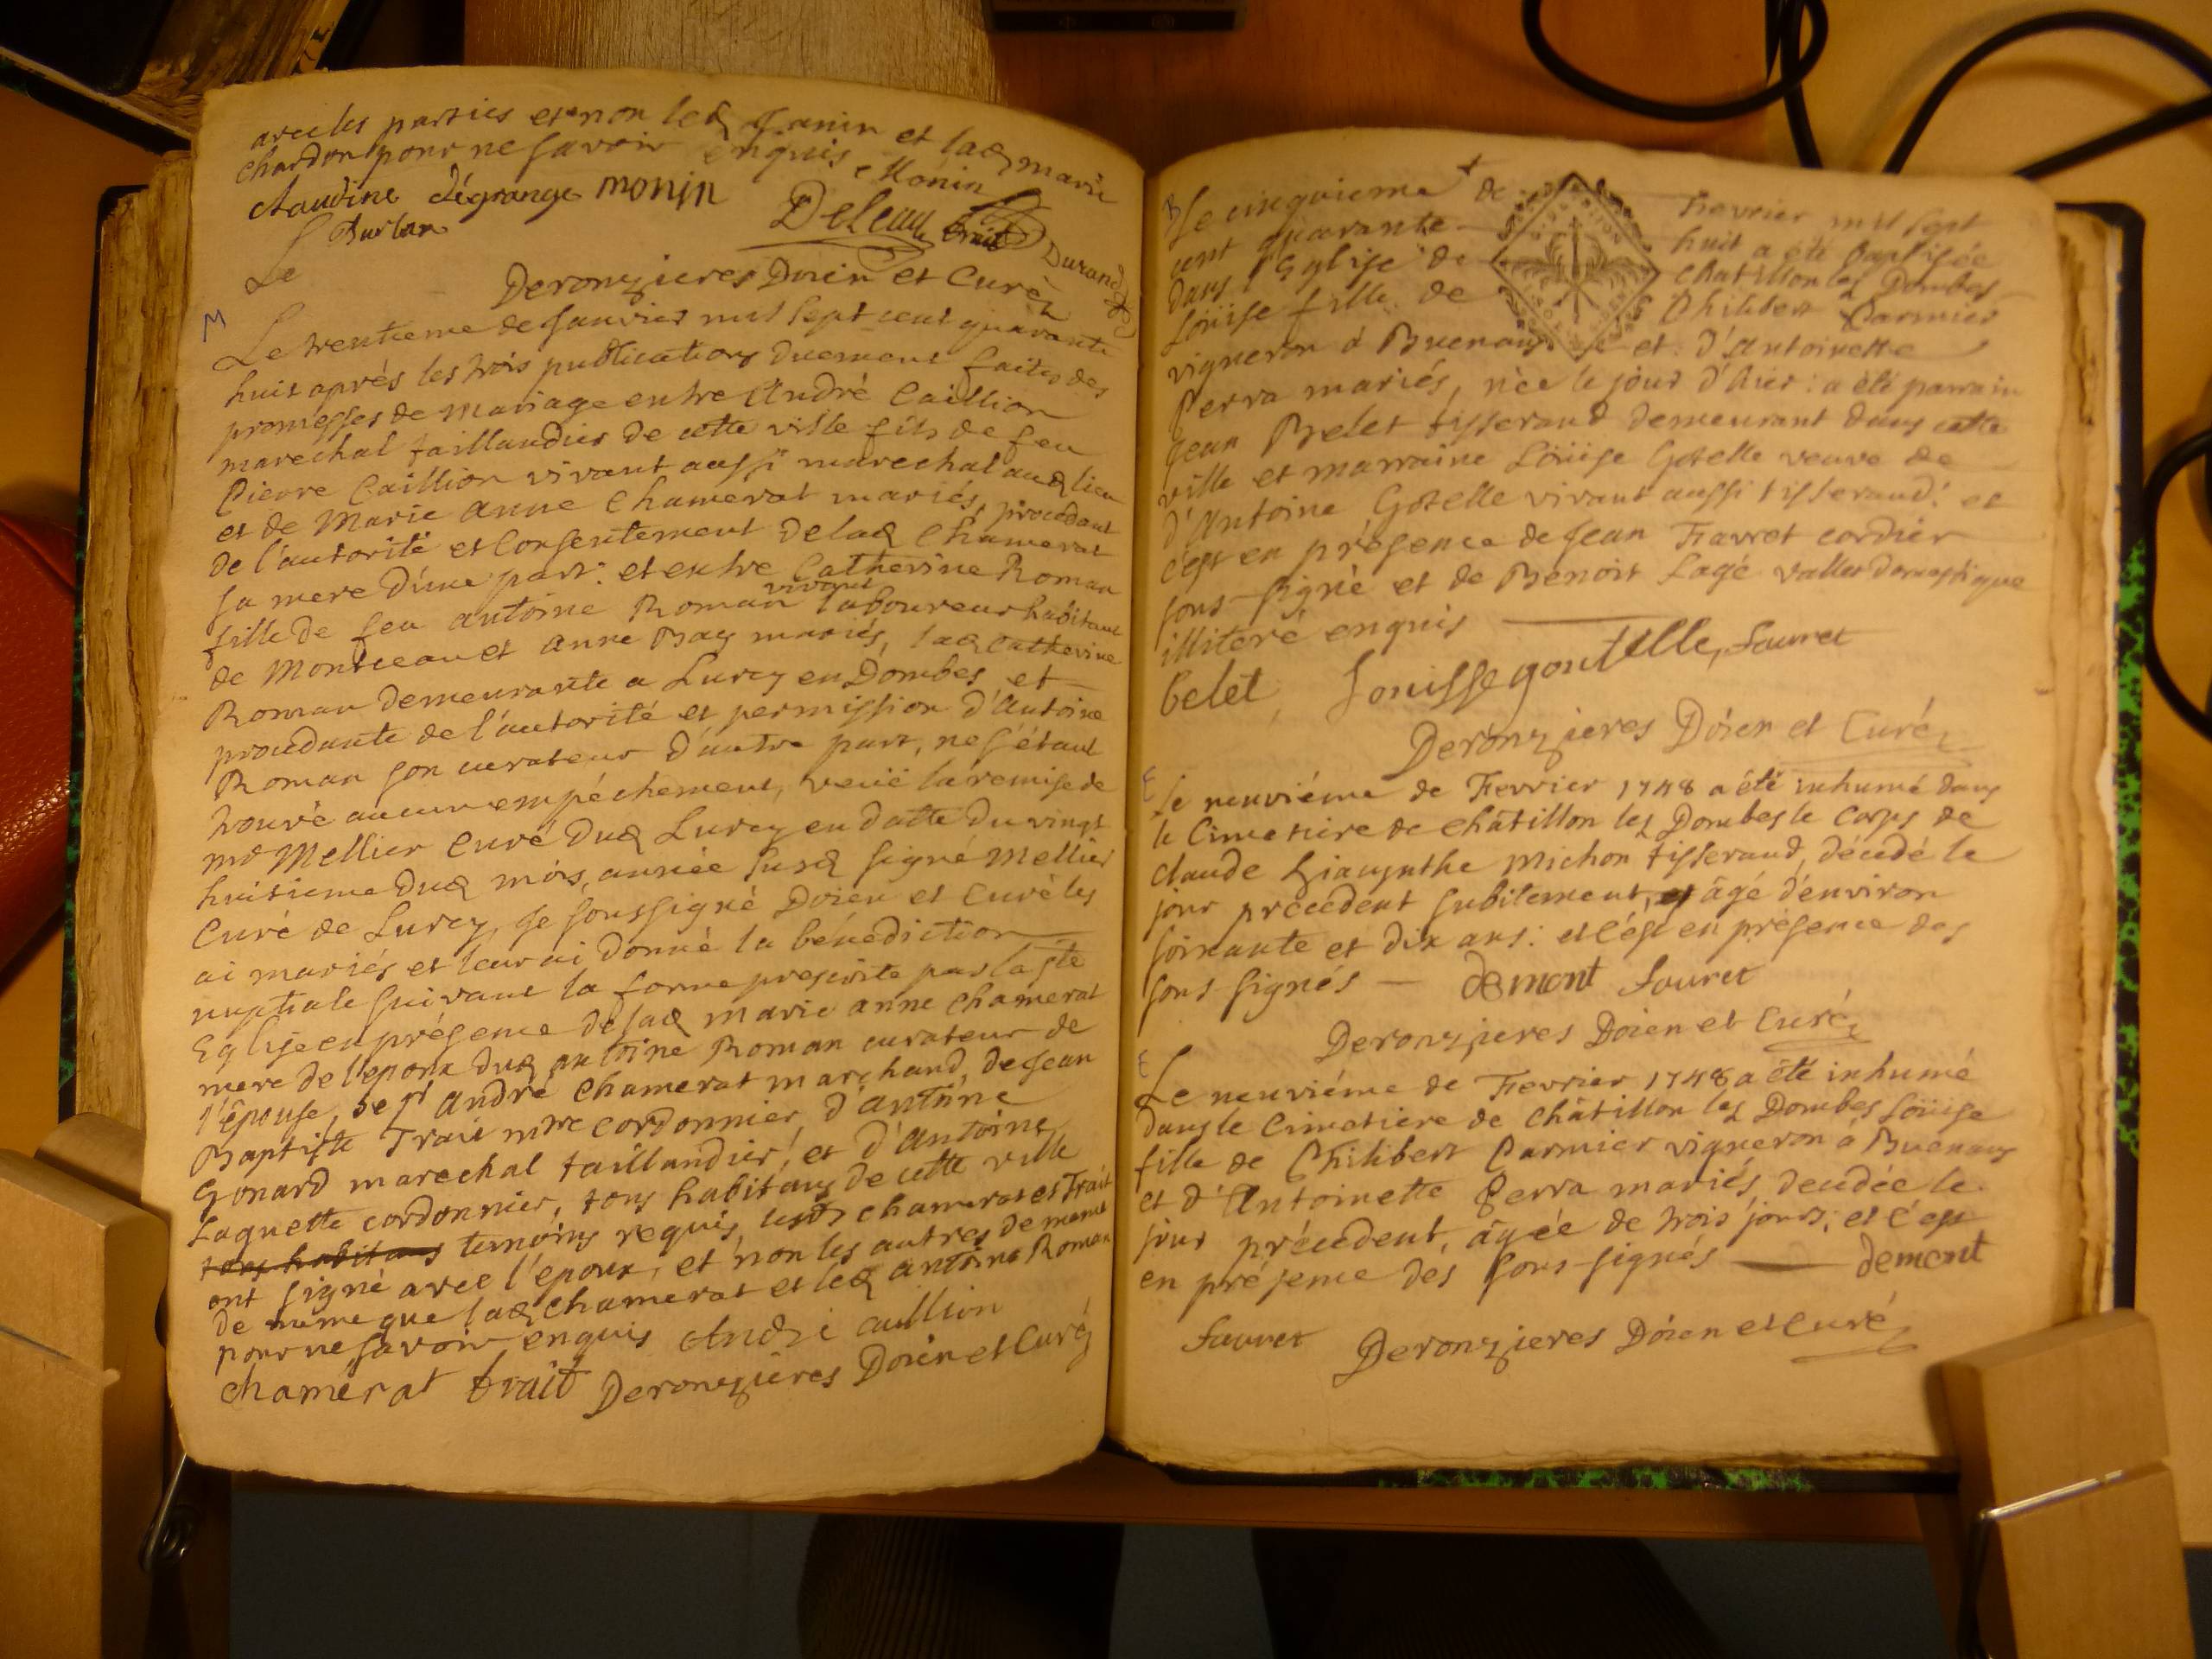 avec les parties et non led Janin et lad marie
chardon pour ne savoir enquis Monin
claudine dégrange monin
Deleau trait Durand
Burlan
Le
Deronzieres Doien et Curé
M
Le trentieme de Janvier mil sept cent quarante
huit aprés les trois publications duement faites des
promesses de mariage entre André Caillion
marechal taillandier de cette ville fils de feu
Pierre Caillion vivant aussi marechal aud lieu
et de Marie anne Chamerat mariés, procedant
de l'autorité et consentement de lad Chamerat
sa mere d'une part: et entre Catherine Roman
fille de feu antoine Roman vivant laboureur habitant
de Montceau et anne Bay mariés, lad Catherine
Roman demeurante a Lurcy en Dombes et
procedante de l'autorité et permission d'Antoine
Roman son curateur d'autre part, ne s'étant
trouvé aucun empéchement, veüe la remise de
mr Mellier Curé dud Lurcy en datte du vingt
huitieme dud mois, année susd signé Mellier
Curé de Lurcy, je soussigné Doien et Curé les
ai mariés et leur ai donné la bénédiction
nuptiale suivant la forme prescrite par la ste
Eglise en présence de lad marie anne chamerat
mere de l'epoux dud antoine Roman curateur de
l'épouse, de sr André Chamerat marchand, de Jean
Baptiste Trait mre cordonnier, d'antoine
Gonard marechal taillandier, et d'Antoine
Laquette cordonnier, tous habitans de cette ville
tous habitans temoins requis, lesd chamerat et Trait
ont signé avec l'epoux, et non les autres de meme
de meme que lad Chamerat et led antoine Roman
pour ne savoir enquis André caillion
chamérat trait Deronzieres Doien et Curé
B
Le cinquieme de Fevrier mil sept
cent quarante huit a été baptisée
dans l'Eglise de Chatillon les Dombes
Loüise fille de Philibert Carmier
vigneron à Buenans et d'Antoinette
Perra mariés, née le jour d'hier: a été parrain
Jean Belet tisserand demeurant dans cette
ville et marraine Loüise Gotelle veuve de
d'Antoine Gotelle vivant aussi tisserand: et
c'est en présence de Jean Favret cordier
sous-signé et de Benoit Lagé vallet domestique
illiteré enquis
belet, Louisse goutelle, favret
Deronzieres Doien et Curé
E
Le neuviéme de Fevrier 1748 a été inhumé dans
le Cimetiere de Châtillon les Dombes le Corps de
claude hiacynthe Michon tisserand, décédé le
jour precédent subitement, et âgé d'environ
soixante et dix ans: et c'est en présence des
sous signés — demont favret
Deronzieres Doien et Curé
E
Le neuviéme de Fevrier 1748 a été inhumé
dans le Cimetiere de Châtillon les Dombes Loüise
fille de Philibert Carmier vigneron à Buenans
et d'Antoinette Perra mariés, decédée le
jour précédent, âgée de trois jours; et c'est
en présence des sous-signés — demont
favret Deronzieres Doien et Curé